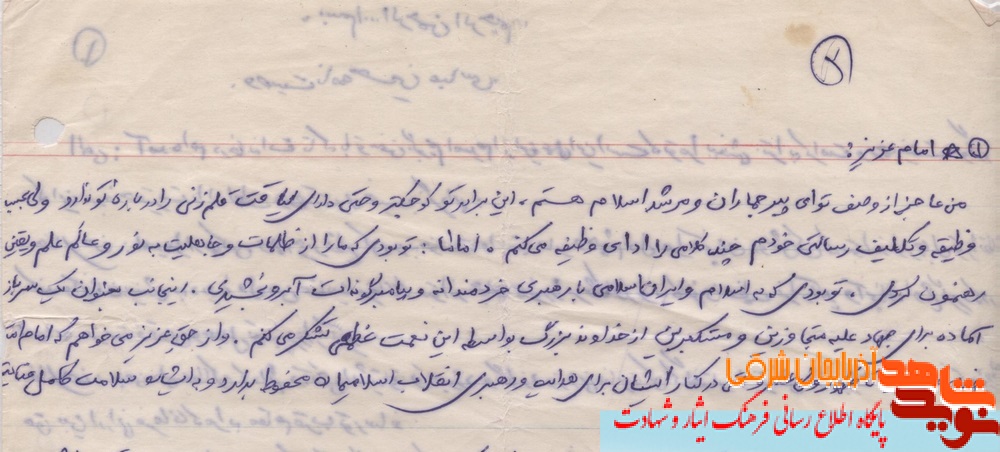 ۲
① امام عزیز:
من عاجز از وصف توای پیر جماران و مرشد اسلام هستم، این برادر تو کوچکتر و حتی دارای لیاقت قلم زنی را درباره تو ندارد ولی بحسب
وظیفه و تکلیف رسالتی خودم چند کلامی را ادای وظیفه می کنم. اماما: تو بودی که ما را از ظلمات و جاهلیت به نور و عالم علم و یقین
رهنمون کردی. تو بودی که به اسلام و ایران اسلامی با رهبری خردمندانه و پیامبرگونه ات آبرو بخشیدی. اینجانب بعنوان یک سرباز
آماده برای جهاد علیه متجاوزین و مستکبرین از خداوند بزرگ بواسطه این نعمت عظمی تشکر می کنم. و از حق عزیز می خواهم که امام امت
در کنار ایشان برای هدایت و رهبری انقلاب اسلامیمان محفوظ بدارد و به ایشان سلامت کامل عنایت
نوید شاهد
آذربایجان شرقی
پایگاه اطلاع رسانی فرهنگ ایثار و شهادت